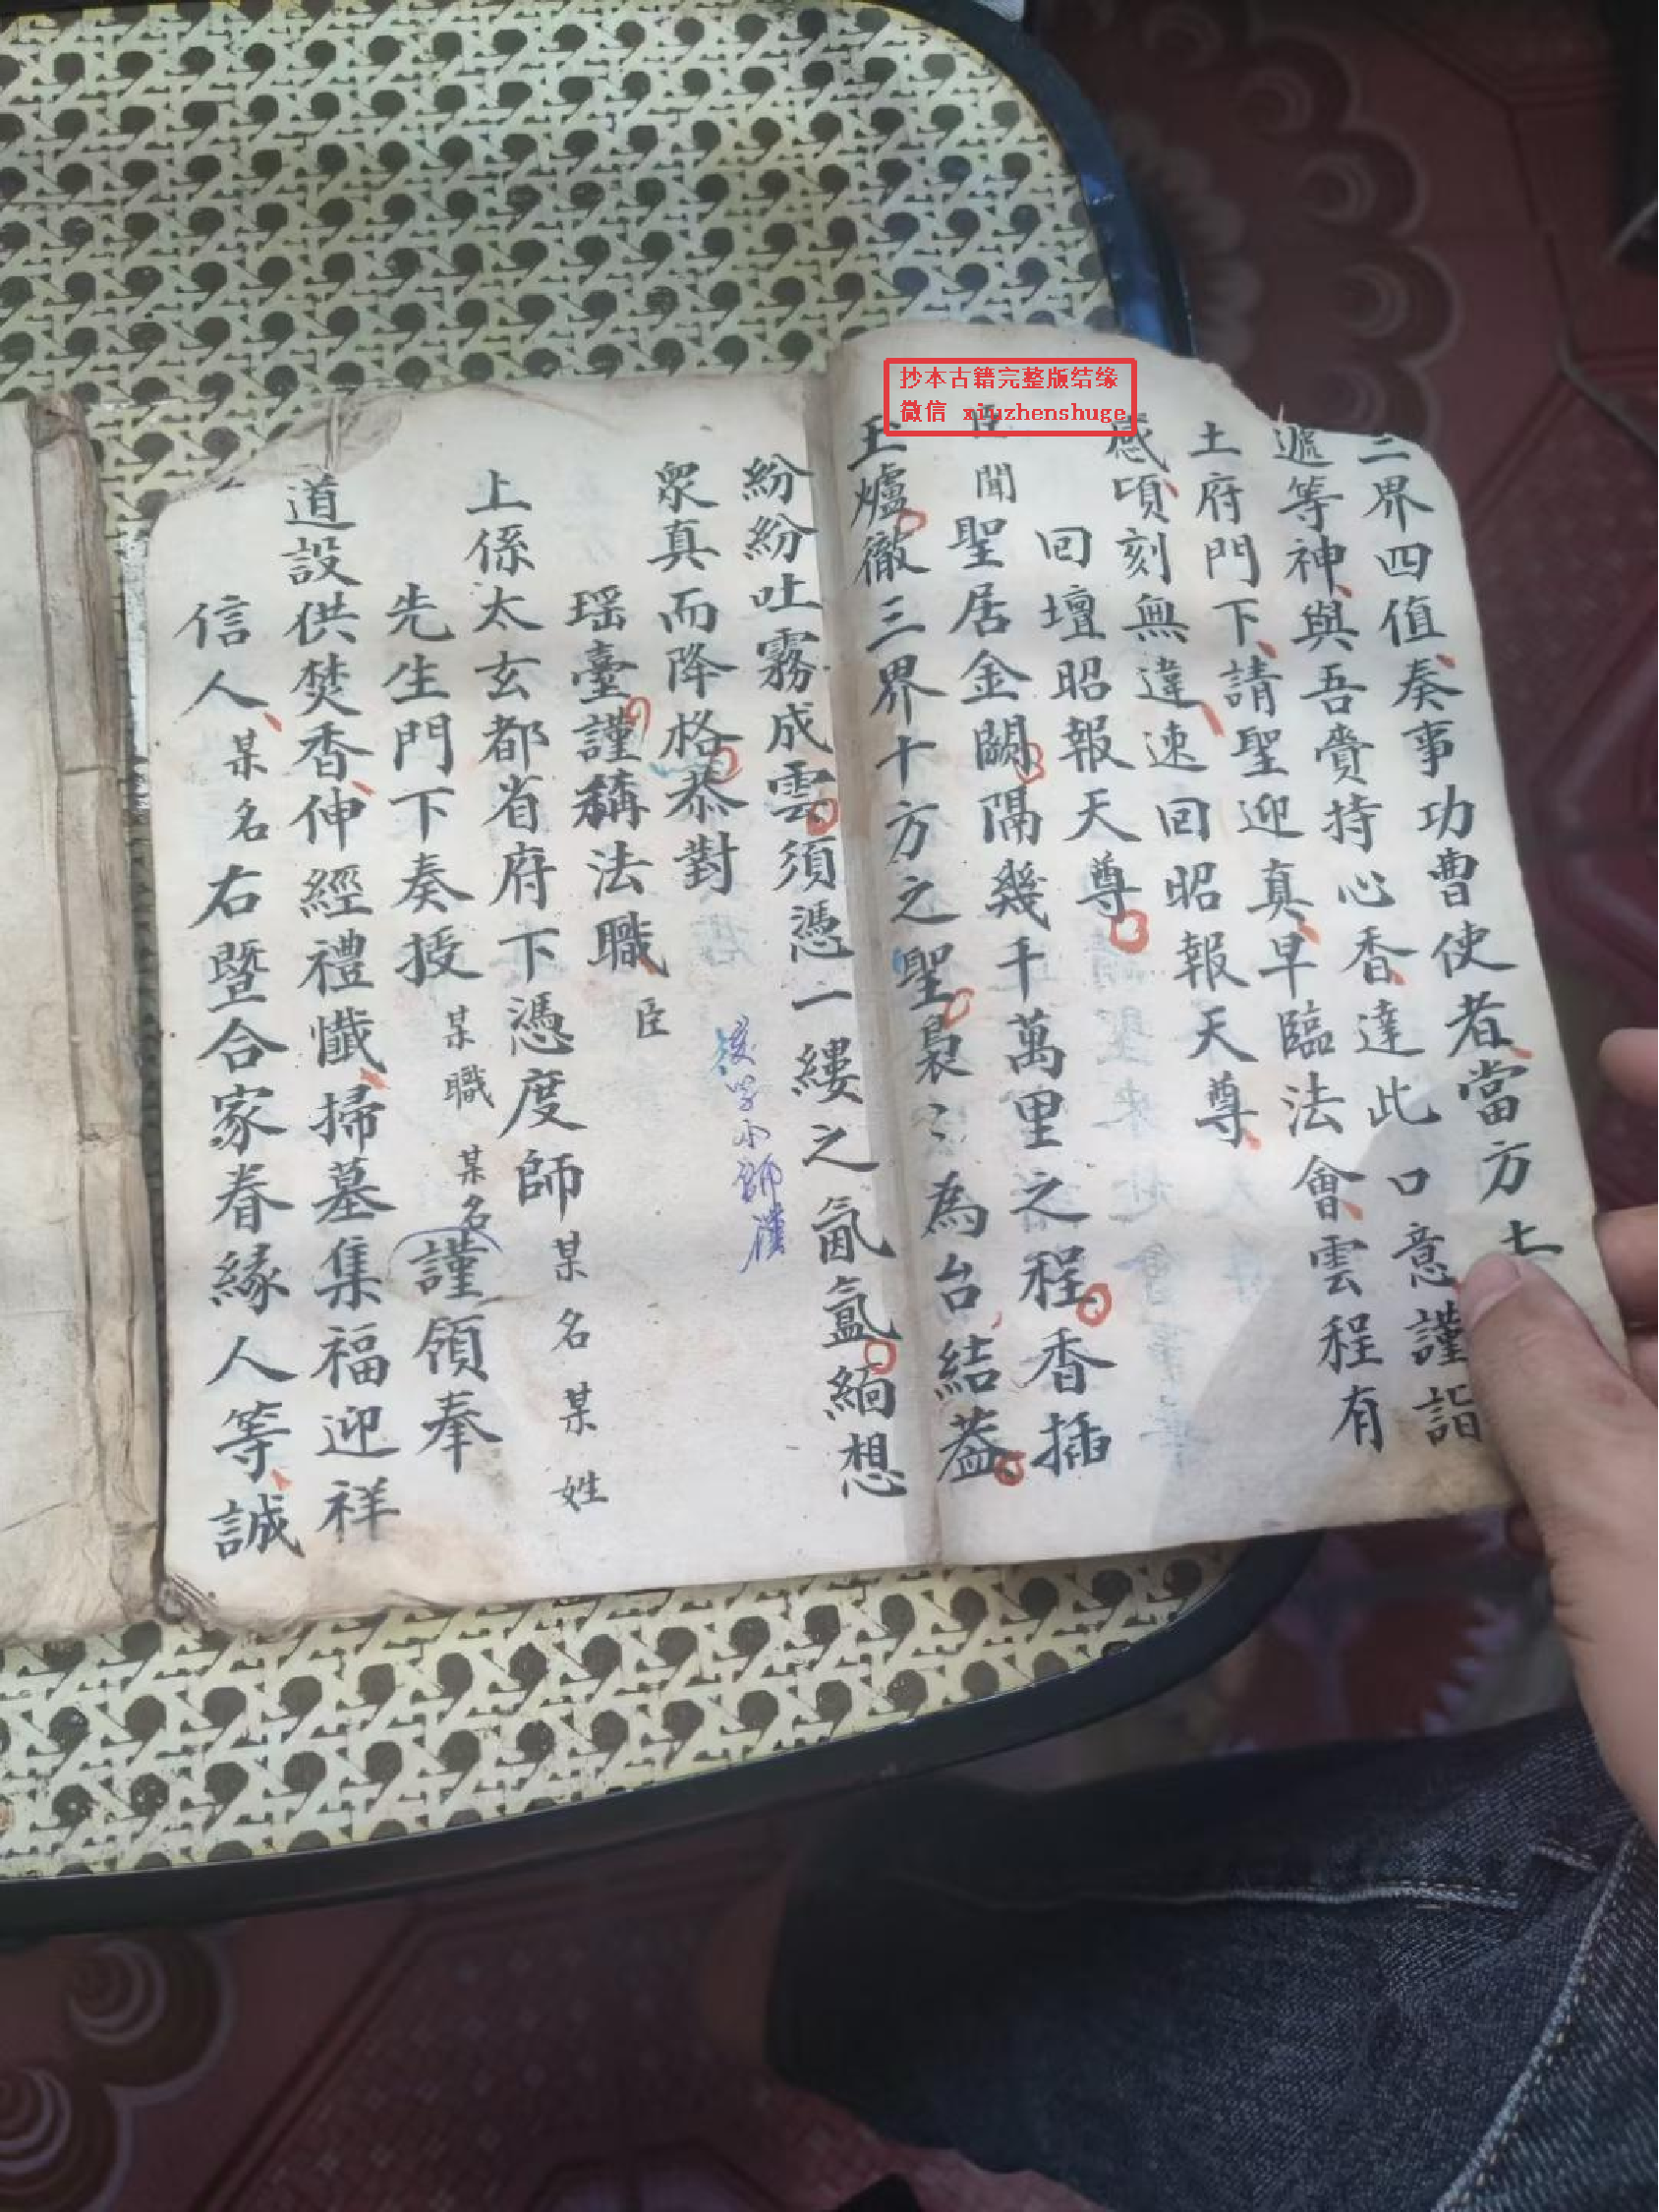 抄本古籍完整版结缘
微信 xiuzhenshuge
三界四值奏事功曹使者當方土
遞等神與吾賫持心香達此口意謹詣
土府門下請聖迎真早臨法會雲程有
感頃刻無違速回昭報天尊
回壇昭報天尊
臣聞聖居金闕隔幾千萬里之程香插
玉爐徹三界十方之聖裊〻為台結蓋
紛紛吐霧成雲須憑一縷之氤氲緬想
衆真而降格恭對
瑶臺謹稱法職臣
上係太玄都省府下憑度師某名某姓
先生門下奏授某職某名謹領奉
道設供焚香伸經禮懺掃墓集福迎祥
信人某名右暨合家眷緣人等誠